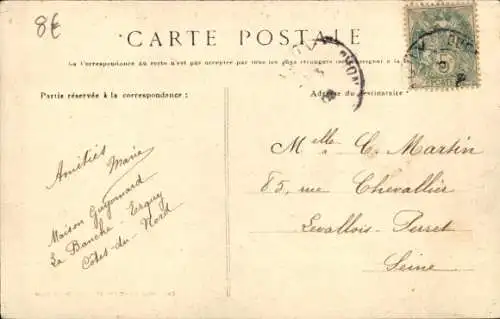 8€
CARTE POSTALE
La Correspondance au recto n'est pas acceptée par tous les pays étrangers
Partie réservée à la correspondance :
Adresse du destinataire
Amitiés
Marie
Maison Guyomard
La Banche - Erquy
Côtes-du-Nord
Melle C. Martin
85, rue Chevallier
Levallois-Perret
Seine